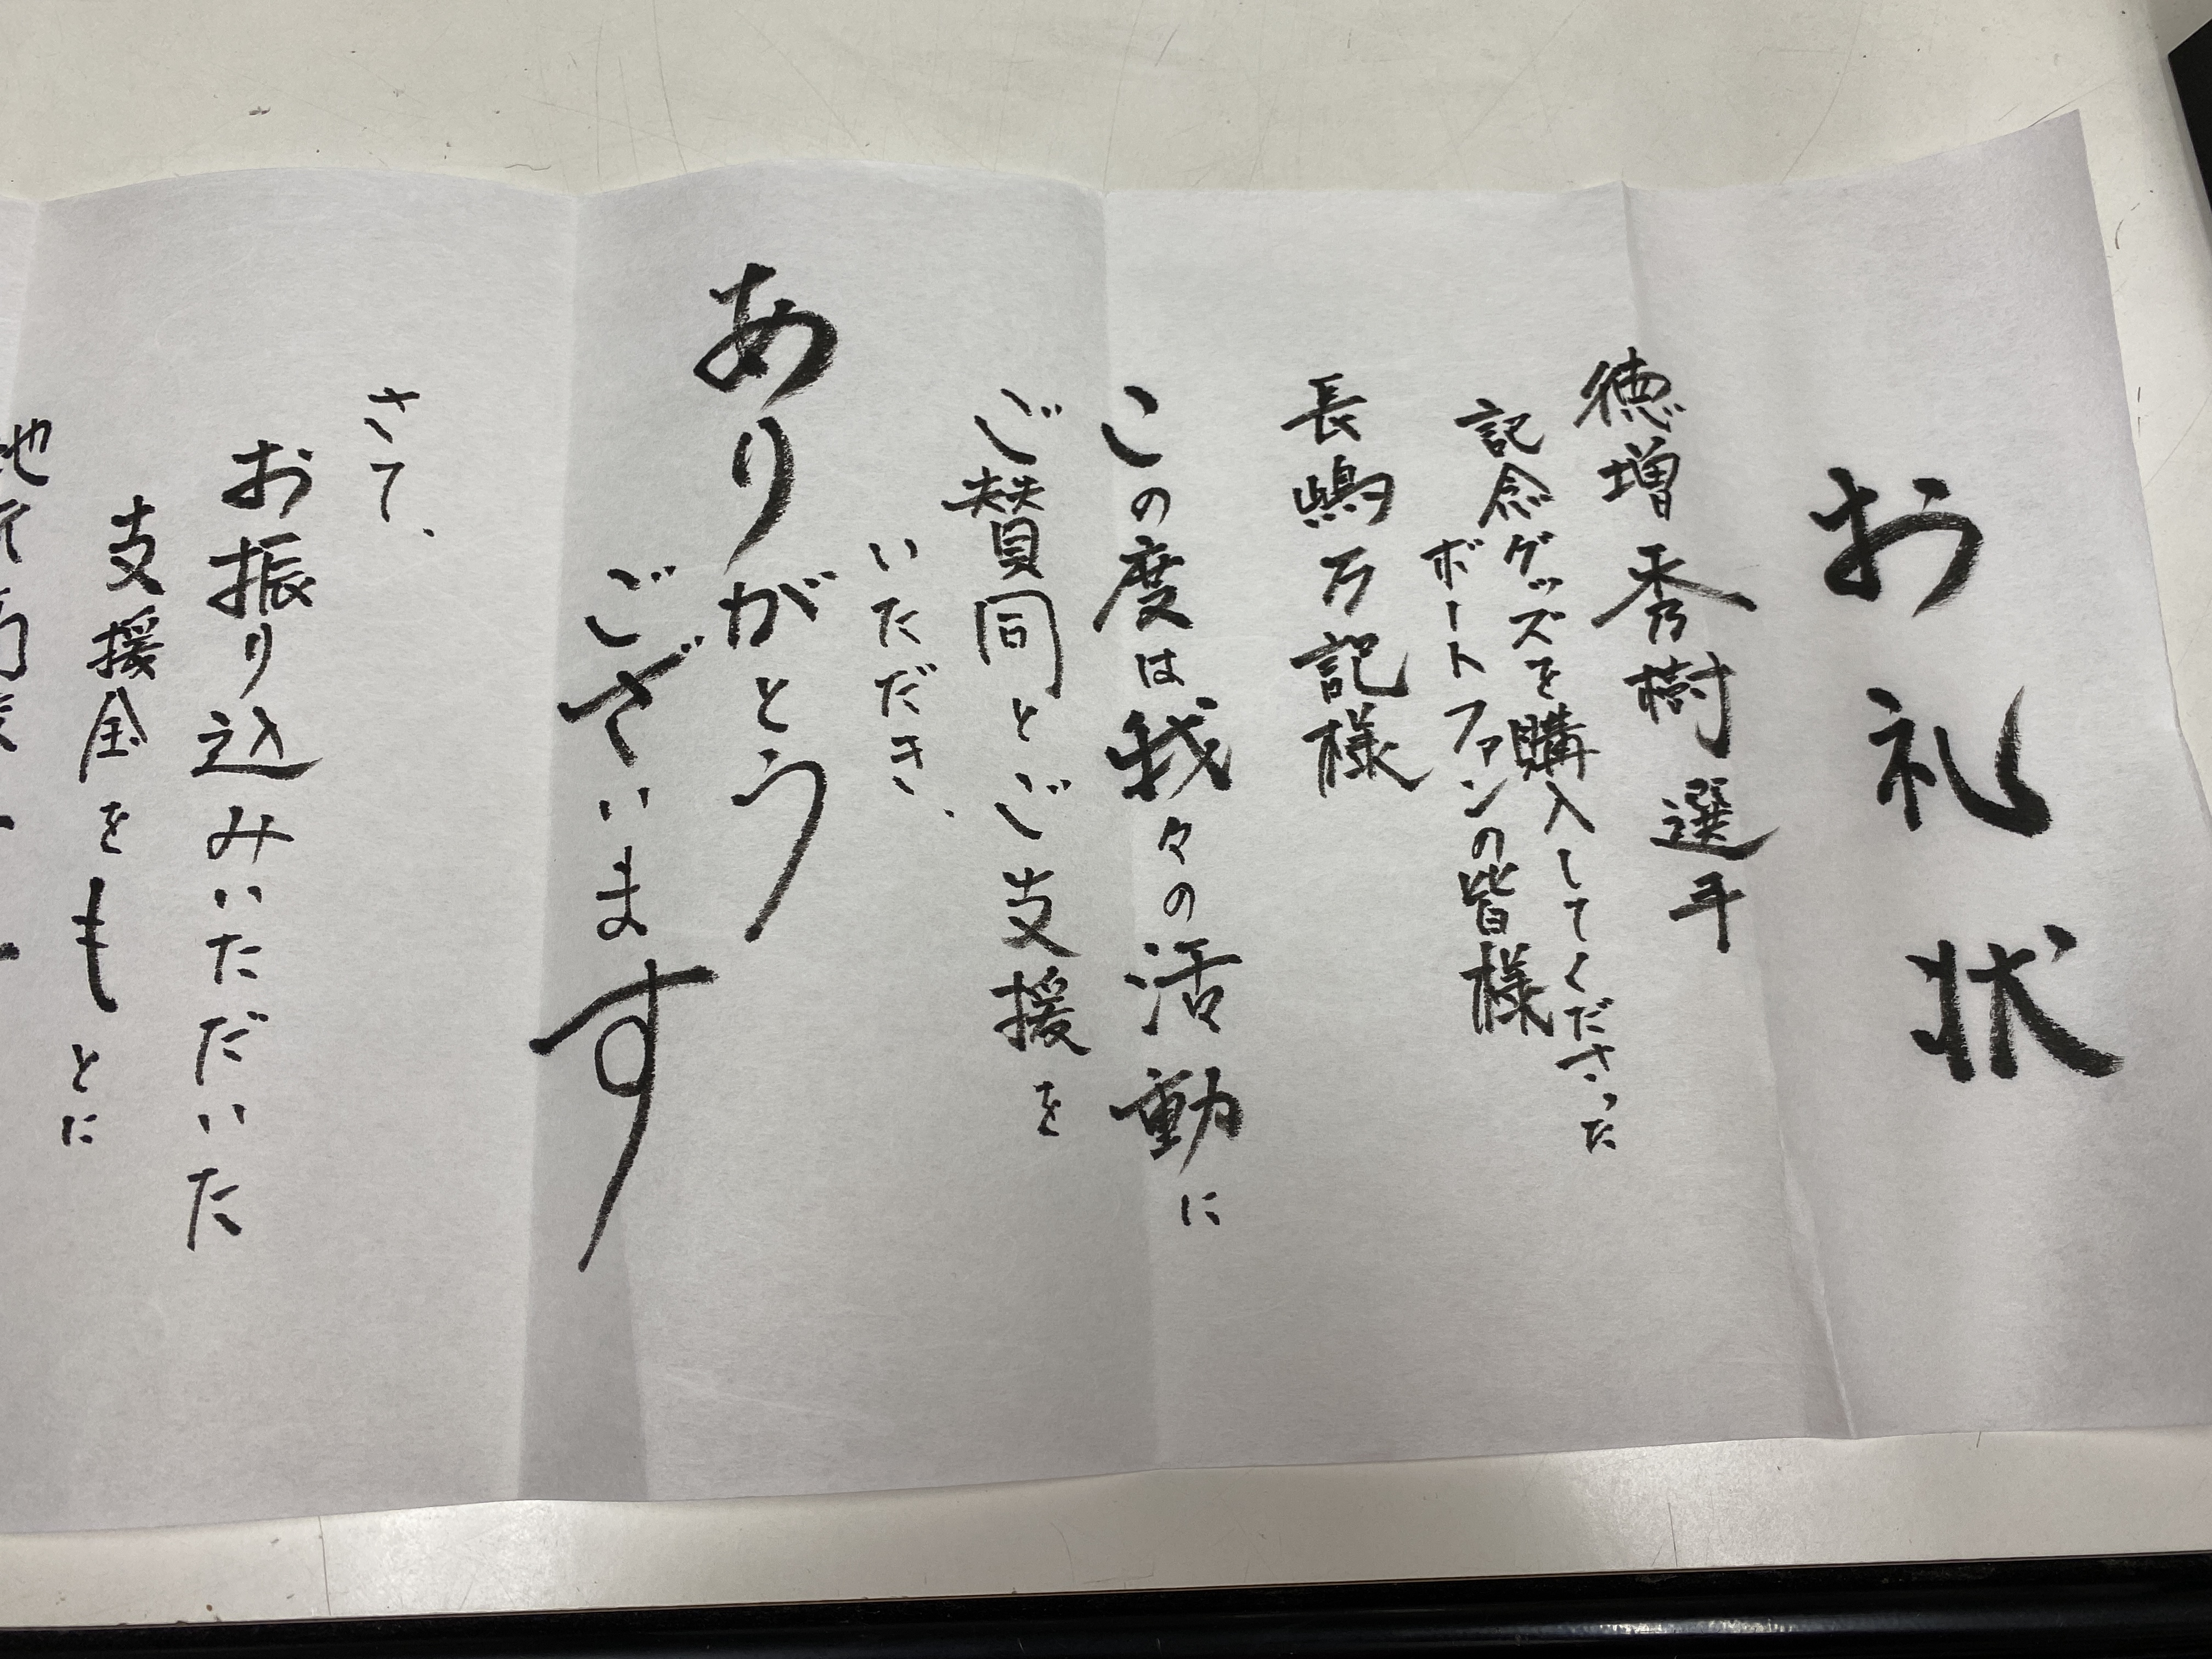 お礼状
徳増秀樹選手
記念グッズを購入してくださった
ボートファンの皆様
長嶋万記様
この度は我々の活動に
ご賛同とご支援を
いただき、
ありがとう
ございます
さて、
お振り込みいただいた
支援金をもとに